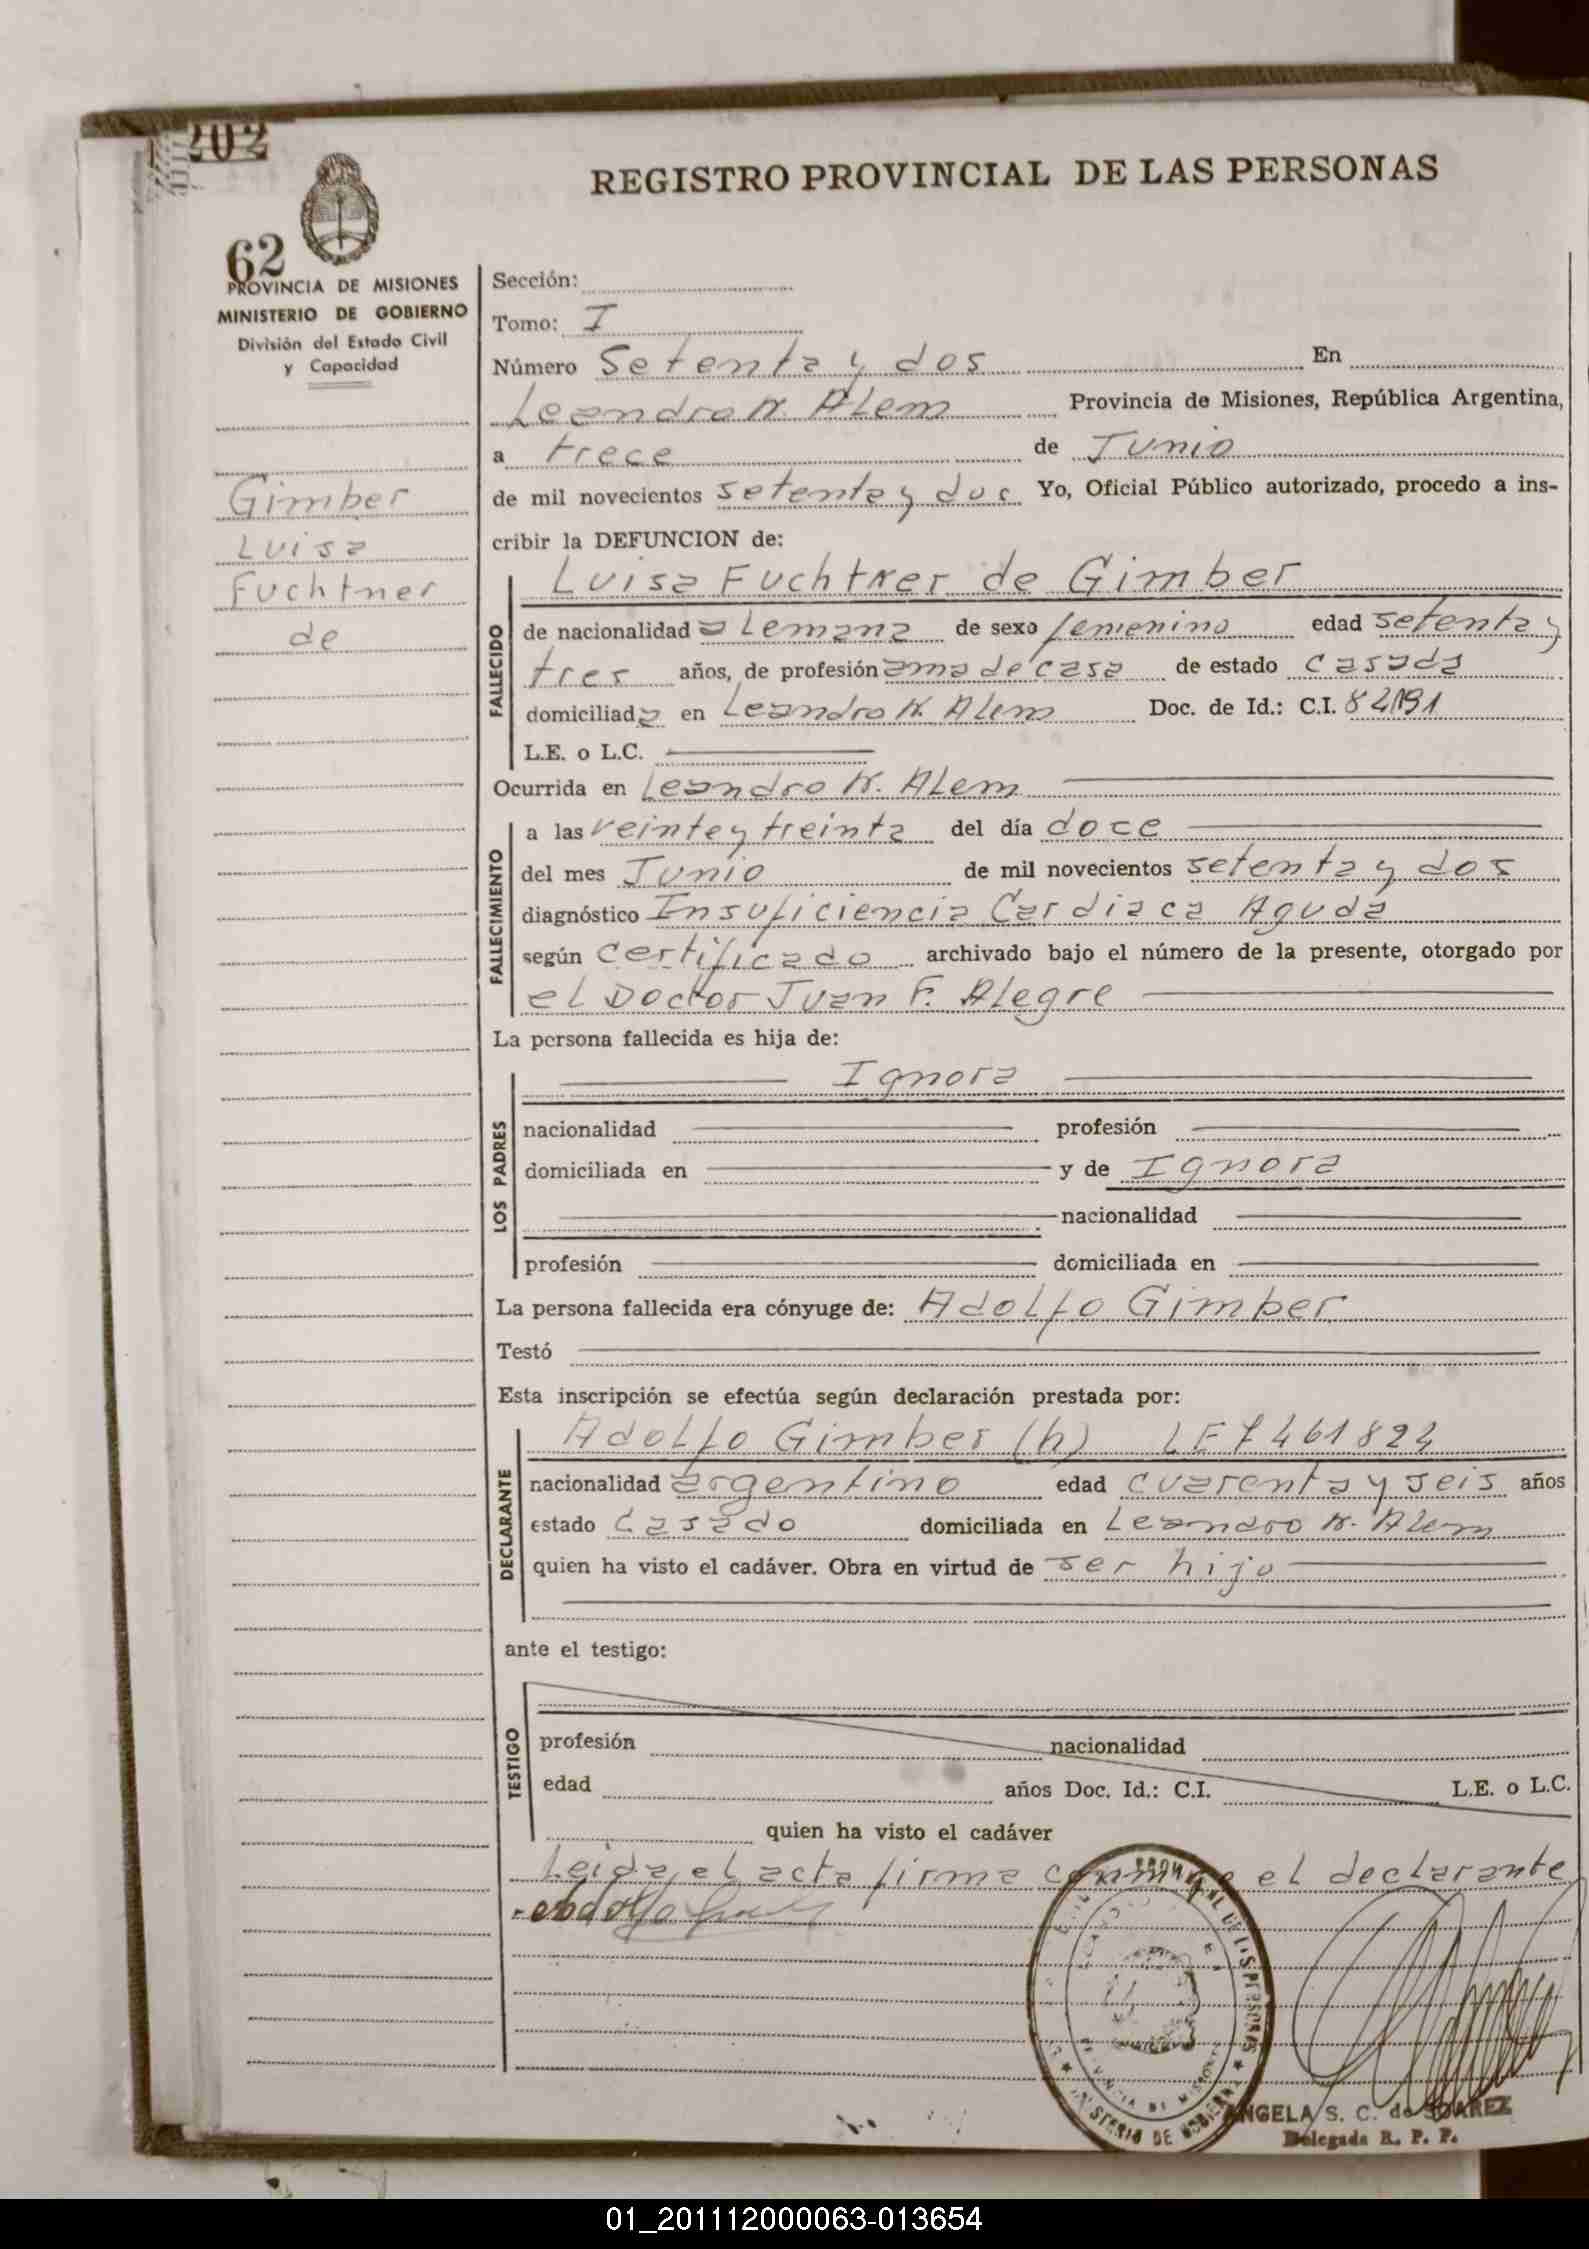 202
62
PROVINCIA DE MISIONES
MINISTERIO DE GOBIERNO
División del Estado Civil
y Capacidad
Gimber
Luisa
Fuchtner
de
REGISTRO PROVINCIAL DE LAS PERSONAS
Sección:
Tomo: I
Número Setenta y dos En
Leandro N. Alem Provincia de Misiones, República Argentina,
a trece de Junio
de mil novecientos setenta y dos Yo, Oficial Público autorizado, procedo a ins-
cribir la DEFUNCION de:
Luisa Fuchtner de Gimber
FALLECIDO
de nacionalidad alemana de sexo femenino edad setenta y
tres años, de profesión ama de casa de estado casada
domiciliada en Leandro N. Alem Doc. de Id.: C.I. 82191
L.E. o L.C.
Ocurrida en Leandro N. Alem
FALLECIMIENTO
a las veinte y treinta del día doce
del mes Junio de mil novecientos setenta y dos
diagnóstico Insuficiencia Cardiaca Aguda
según certificado archivado bajo el número de la presente, otorgado por
el Doctor Juan F. Alegre
La persona fallecida es hija de:
LOS PADRES
Ignora
nacionalidad profesión
domiciliada en y de Ignora
nacionalidad
profesión domiciliada en
La persona fallecida era cónyuge de: Adolfo Gimber
Testó
Esta inscripción se efectúa según declaración prestada por:
DECLARANTE
Adolfo Gimber (h) LE 7461824
nacionalidad argentino edad cuarenta y seis años
estado Casado domiciliada en Leandro N. Alem
quien ha visto el cadáver. Obra en virtud de ser hijo
ante el testigo:
TESTIGO
profesión nacionalidad
edad años Doc. Id.: C.I. L.E. o L.C.
quien ha visto el cadáver
Leida el acta firma conmigo el declarante
Adolfo
ANGELA S. C. de SUAREZ
Delegada R. P. P.
01_201112000063-013654